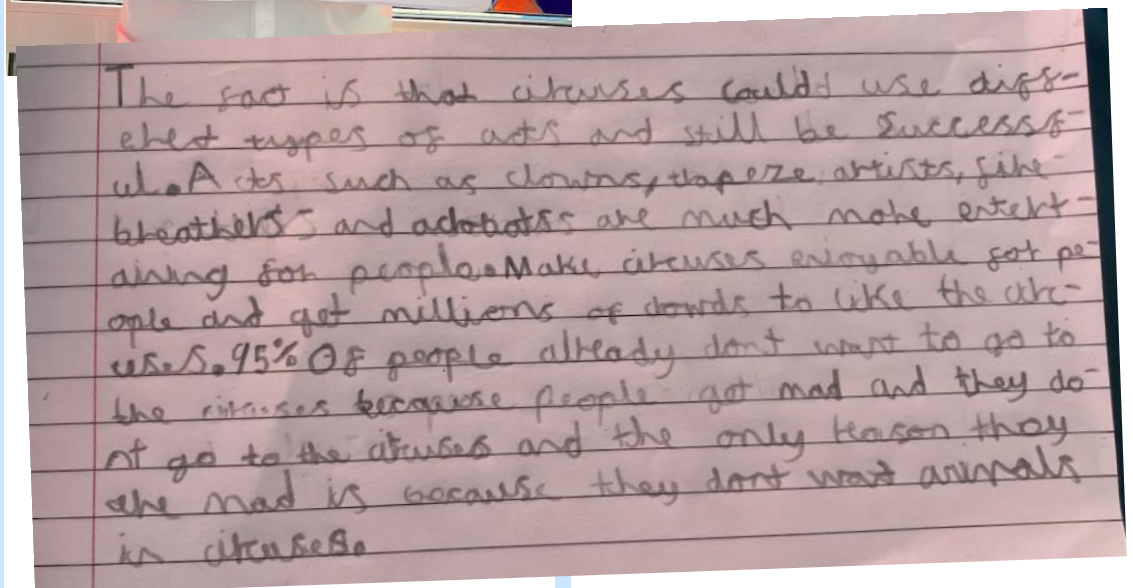 The fact is that circuses could use diff-
erent types of acts and still be successf-
ul. Acts such as clowns, trapeze artists, fire
breathers and acrobats are much more entert-
aining for people. Make circuses enjoyable for pe-
ople and get millions of crowds to like the circ-
uses. 95% Of people already dont want to go to
the circuses because people got mad and they do-
nt go to the circuses and the only reason they
are mad is because they dont want animals
in circuses.